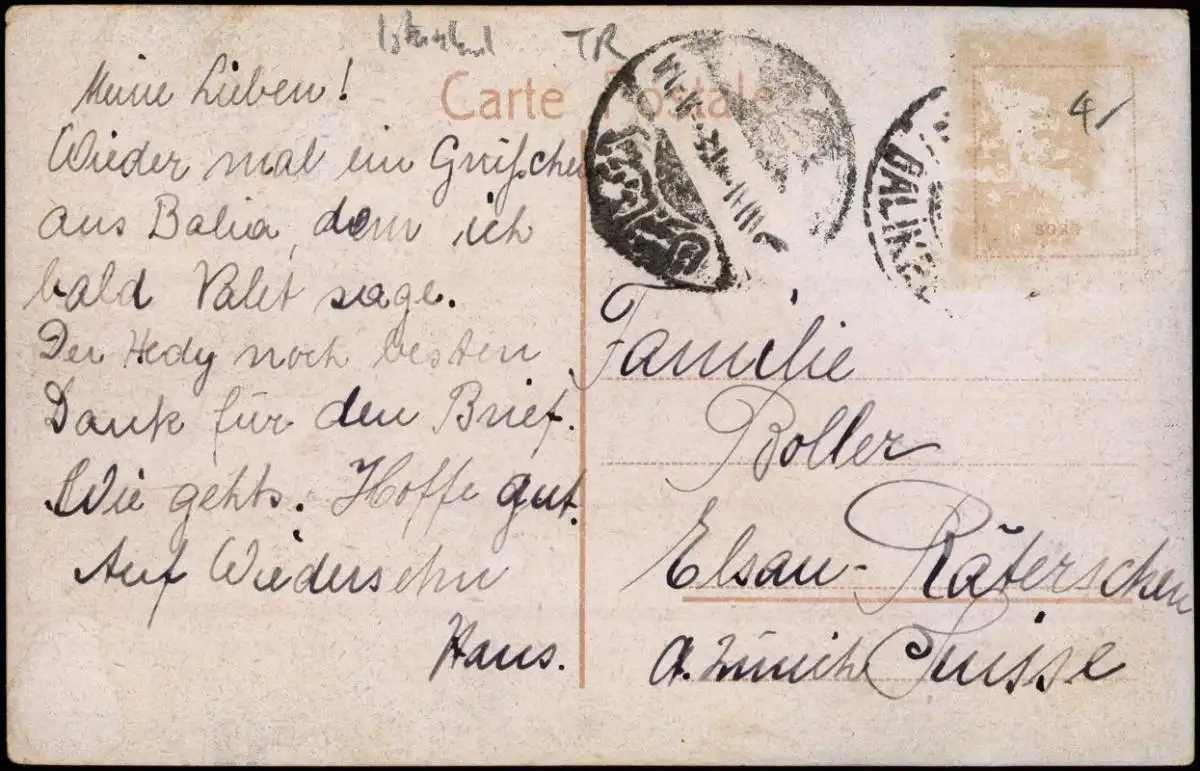 Istanbul TR
Carte Postale
4/
BALIKE
Meine Lieben!
Wieder mal ein Grüßchen
aus Balia, dem ich
bald Valet sage.
Der Hedy noch besten
Dank für den Brief.
Wie gehts. Hoffe gut.
Auf Wiedersehn
Hans.
Familie
Boller
Elsau-Räterschen
Suisse